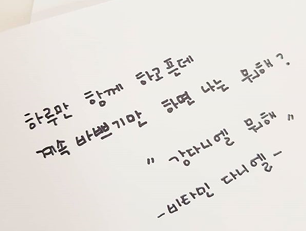 하루만 함께 하고픈데
계속 바쁘기만 하면 나는 뭐해?
" 강다니엘 뭐해 "
- 비타민 다니엘 -